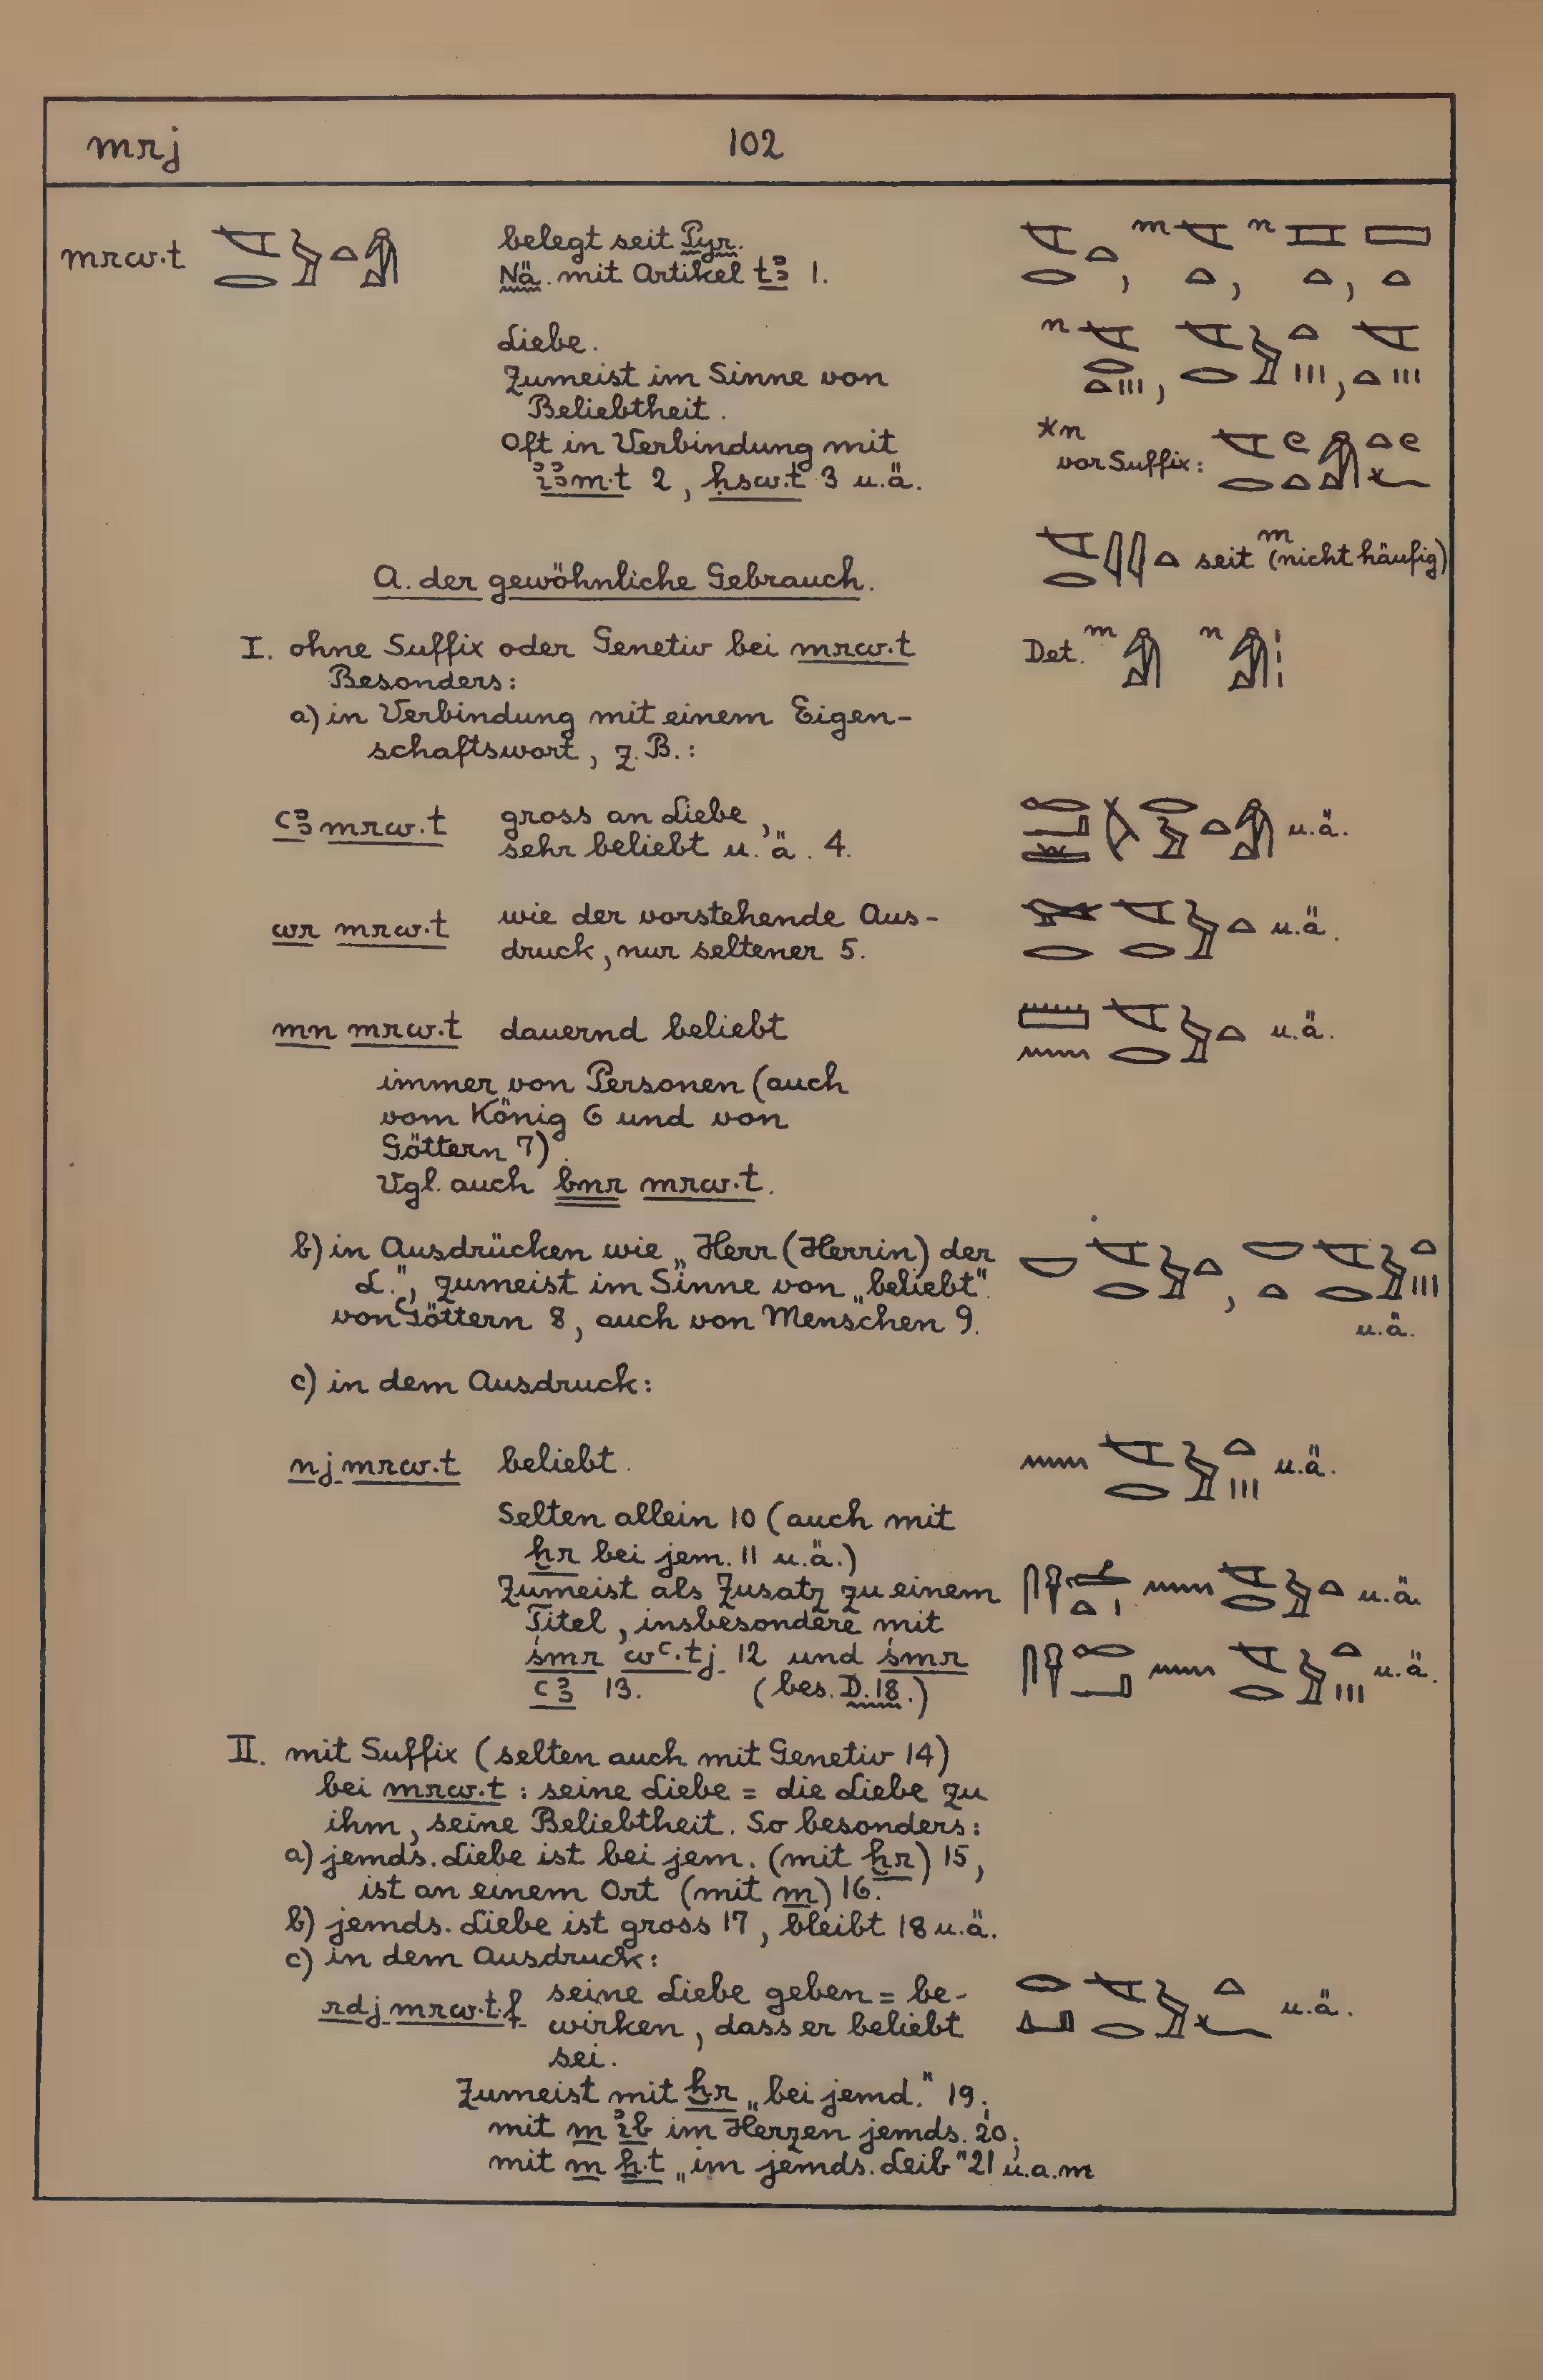 mrj 102
mrw.t belegt seit Pyr.
Nä. mit Artikel tꜣ 1.
Liebe.
Zumeist im Sinne von
Beliebtheit.
Oft in Verbindung mit
iꜣm.t 2, ḥsw.t 3 u.ä.
m n
n
*n
vor Suffix:
seit m (nicht häufig)
A. der gewöhnliche Gebrauch.
I. ohne Suffix oder Genetiv bei mrw.t
Det. m n
Besonders:
a) in Verbindung mit einem Eigen-
schaftswort, z.B.:
ꜥꜣ mrw.t gross an Liebe,
sehr beliebt u.ä. 4. u.ä.
wr mrw.t wie der vorstehende Aus-
druck, nur seltener 5. u.ä.
mn mrw.t dauernd beliebt u.ä.
immer von Personen (auch
vom König 6 und von
Göttern 7).
Vgl. auch bnr mrw.t.
b) in Ausdrücken wie „Herr (Herrin) der
L.", zumeist im Sinne von „beliebt".
von Göttern 8, auch von Menschen 9. u.ä.
c) in dem Ausdruck:
nj mrw.t beliebt. u.ä.
Selten allein 10 (auch mit
ḫr bei jem. 11 u.ä.)
Zumeist als Zusatz zu einem u.ä.
Titel, insbesondere mit
śmr wꜥ.tj 12 und śmr u.ä.
ꜥꜣ 13. (bes. D.18.)
II. mit Suffix (selten auch mit Genetiv 14)
bei mrw.t: seine Liebe = die Liebe zu
ihm, seine Beliebtheit. So besonders:
a) jemds. Liebe ist bei jem. (mit ḫr) 15,
ist an einem Ort (mit m) 16.
b) jemds. Liebe ist gross 17, bleibt 18 u.ä.
c) in dem Ausdruck:
rdj mrw.t.f seine Liebe geben = be-
wirken, dass er beliebt u.ä.
sei.
Zumeist mit ḫr „bei jemd." 19;
mit m ib im Herzen jemds. 20;
mit m ẖ.t „im jemds. Leib" 21 u.a.m